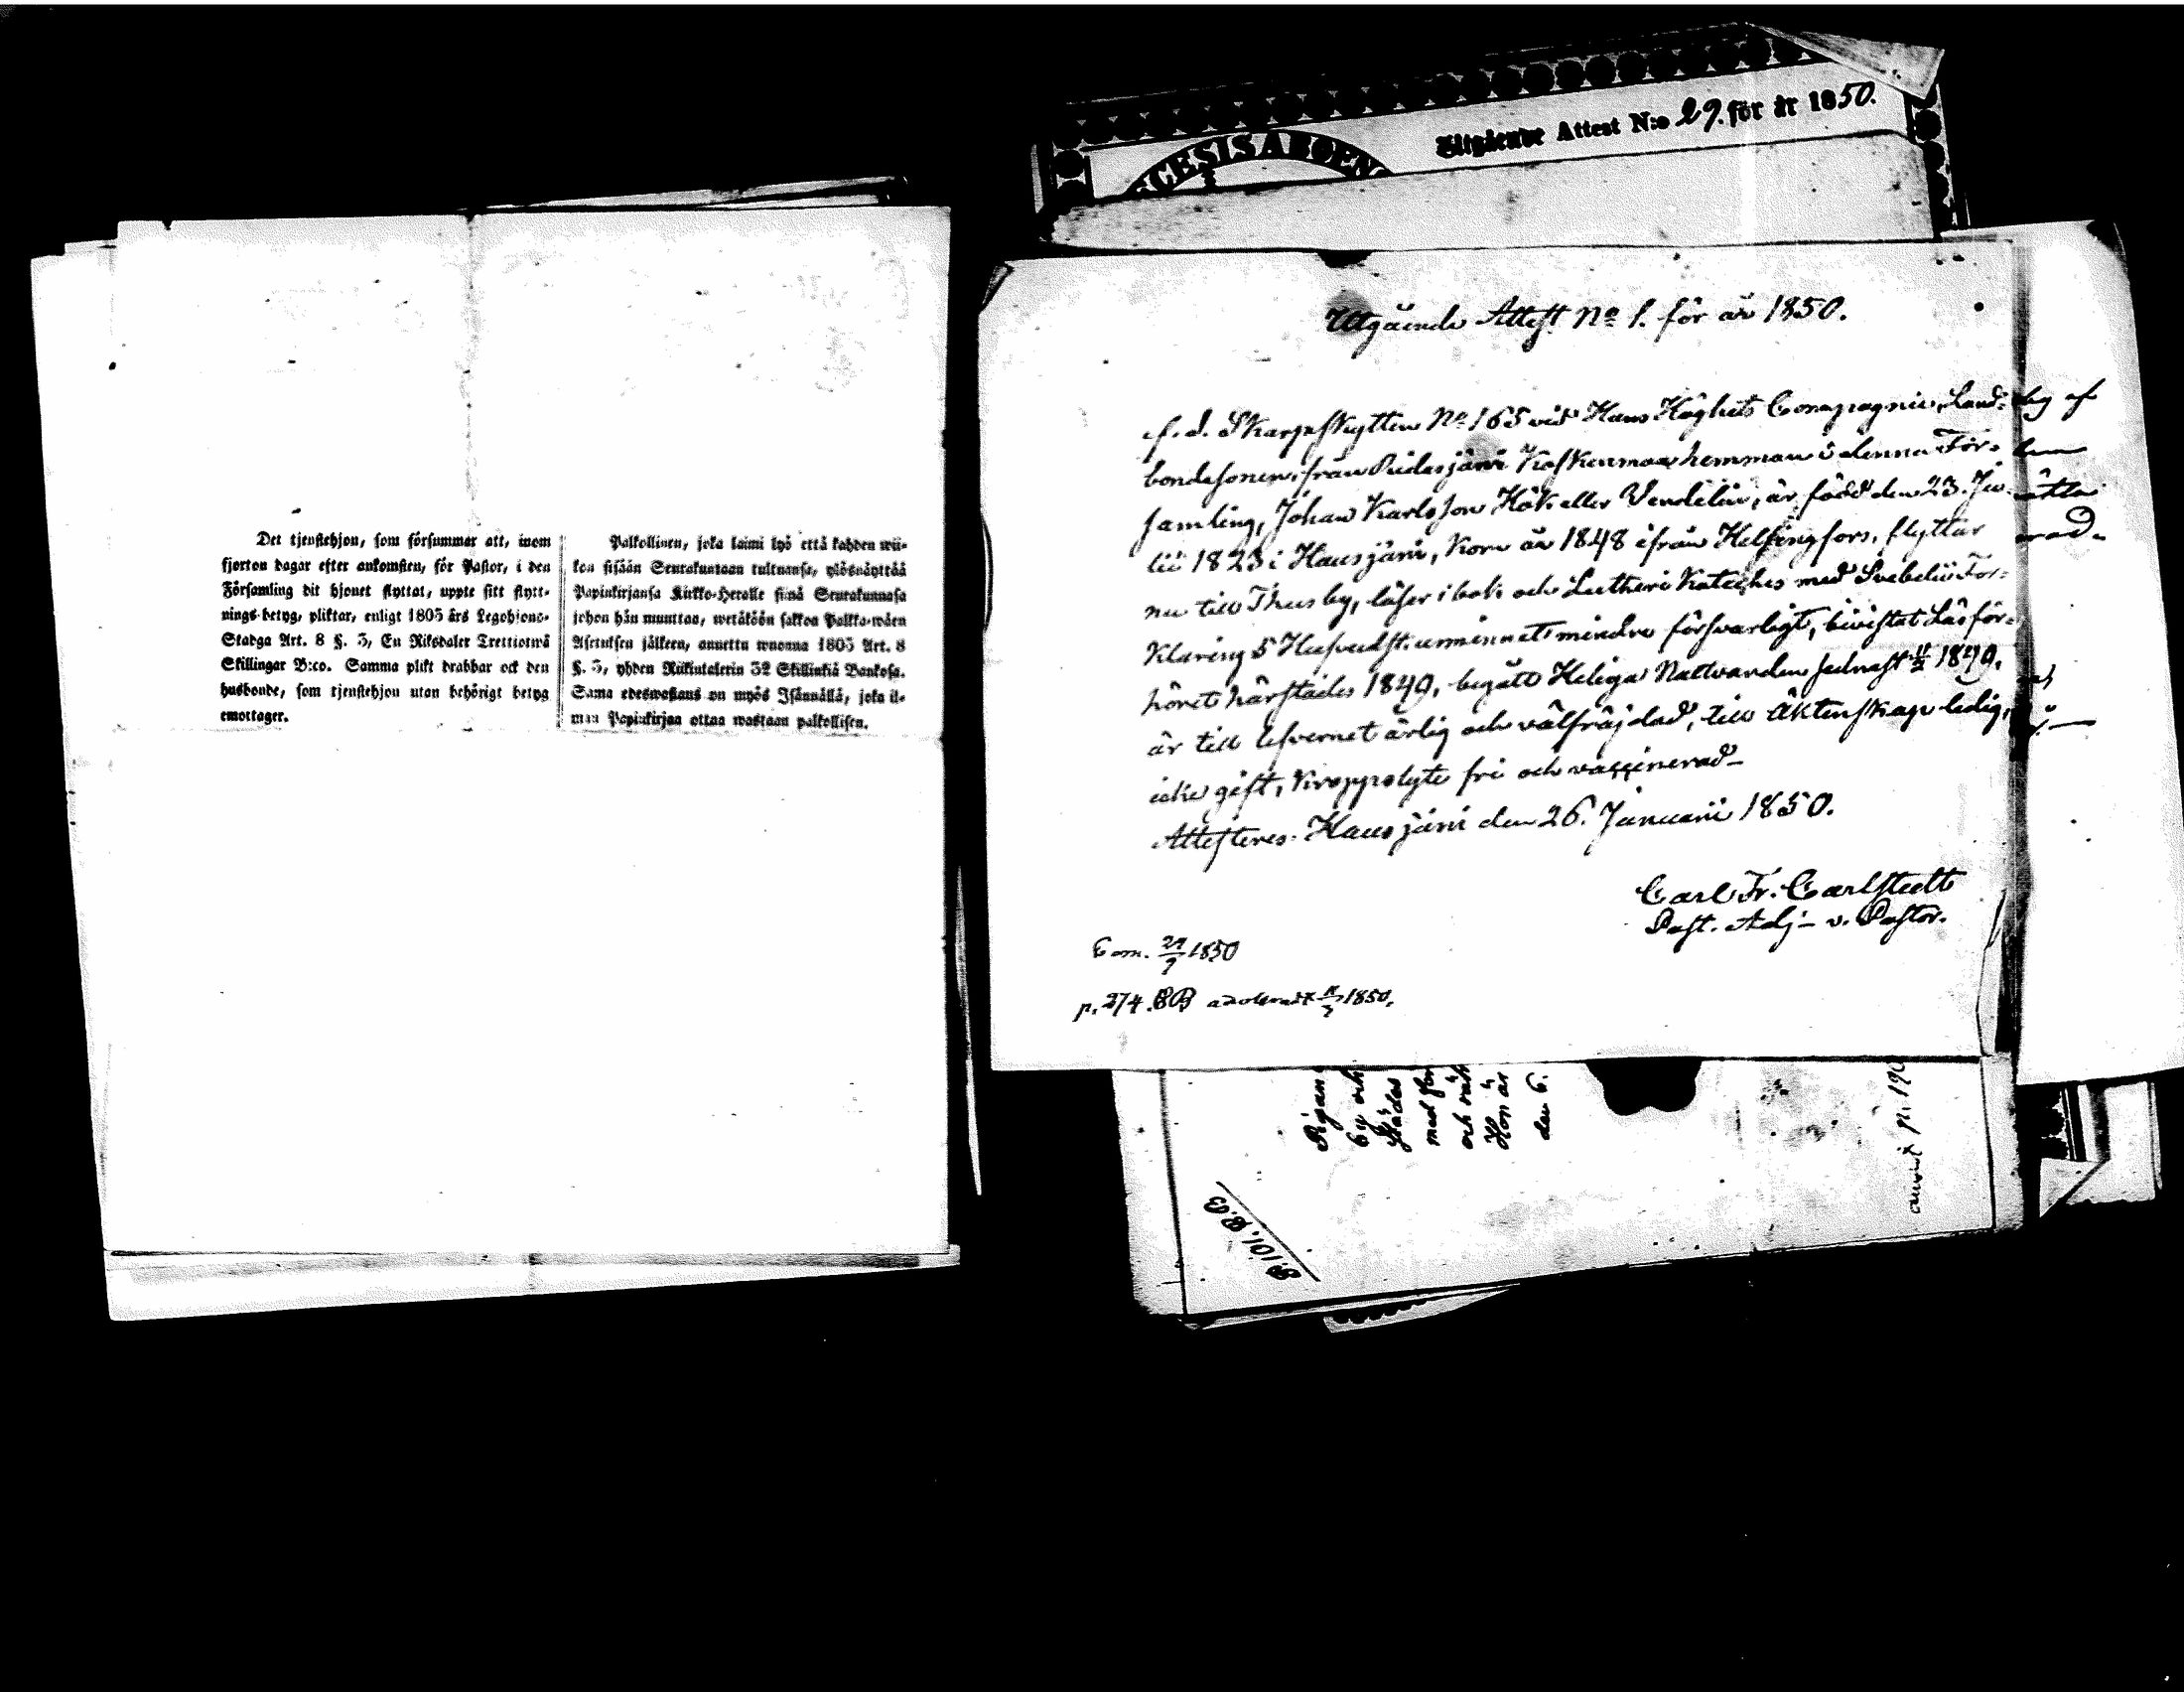 Det tjenstehjon, som försummar att, inom
fjorton dagar efter ankomsten, för Pastor, i den
Församling dit hjonet flyttat, uppte sitt flytt-
nings-betyg, pliktar, enligt 1805 års Legohjons-
Stadga Art. 8 §. 3, En Riksdaler Trettiotwå
Skillingar B:co. Samma plikt drabbar ock den
husbonde, som tjenstehjon utan behörigt betyg
emottager.
Palkollinen, joka laimi lyö että kahden wii-
kon sisään Seurakuntaan tultuansa, ylösnäyttää
Papinkirjansa Kirkko-Herralle siinä Seurakunnasa
johon hän muuttaa, wetäköön sakkoa Palkka-wäen
Asetuksen jälkeen, annettu wuonna 1805 Art. 8
§. 3, yhden Riikintalerin 32 Skillinkiä Bankosa.
Sama edeswastaus on myös Isännällä, joka il-
man Papinkirjaa ottaa wastaan palkollisen.
Utgående Attest N:o 29. för år 1850.
Utgående Attest No 1. för år 1850.
f. d. Skarpskytten No 165 vid Hans Höghets Compagnie, Land-
bondesonen ifrån Kaskenmaa hemman i denna För-
samling, Johan Karlsson Hök eller Vendelin, är född den 23. Ju-
lii 1823 i Hausjärvi, kom år 1848 ifrån Helsingfors, flyttar
nu till Thusby, läser i bok och Lutheri Kateches med Svebelii För-
klaring 5 Hufvudst. utminnet mindre försvarligt, bivistat Läsför-
höret härstädes 1849, begått Heliga Nattvarden sednast 1849,
är till lefvernet ärlig och välfräjdad, till Äktenskap ledig,
icke gift, kroppslyte fri och vaccinerad
Attesteres. Hausjärvi den 26. Januarii 1850.
Carl Fr. Carlstedt
Past. Adj. v. Pastor.
1850
p. 274. 1850.
Pigan
by och
städes
med för
Hon är
den 6.
p. 101. B.B